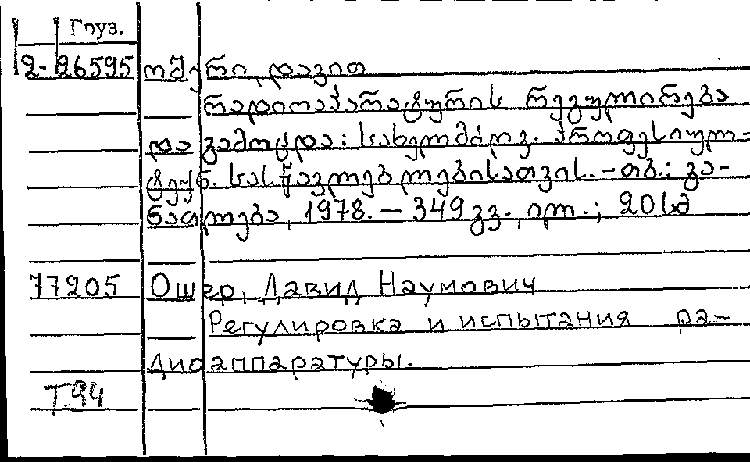 Груз.
2-26595 ოშერი, დავით
რადიოაპარატურის რეგულირება
და გამოცდა: სახელმძღვ. პროფესიულ-
ტექნ. სასწავლებლებისათვის. - თბ.: გა-
ნათლება, 1978. — 349 გვ., ილ.; 20 სმ
77205 Ошер, Давид Наумович
Регулировка и испытания ра-
диоаппаратуры.
Т.94